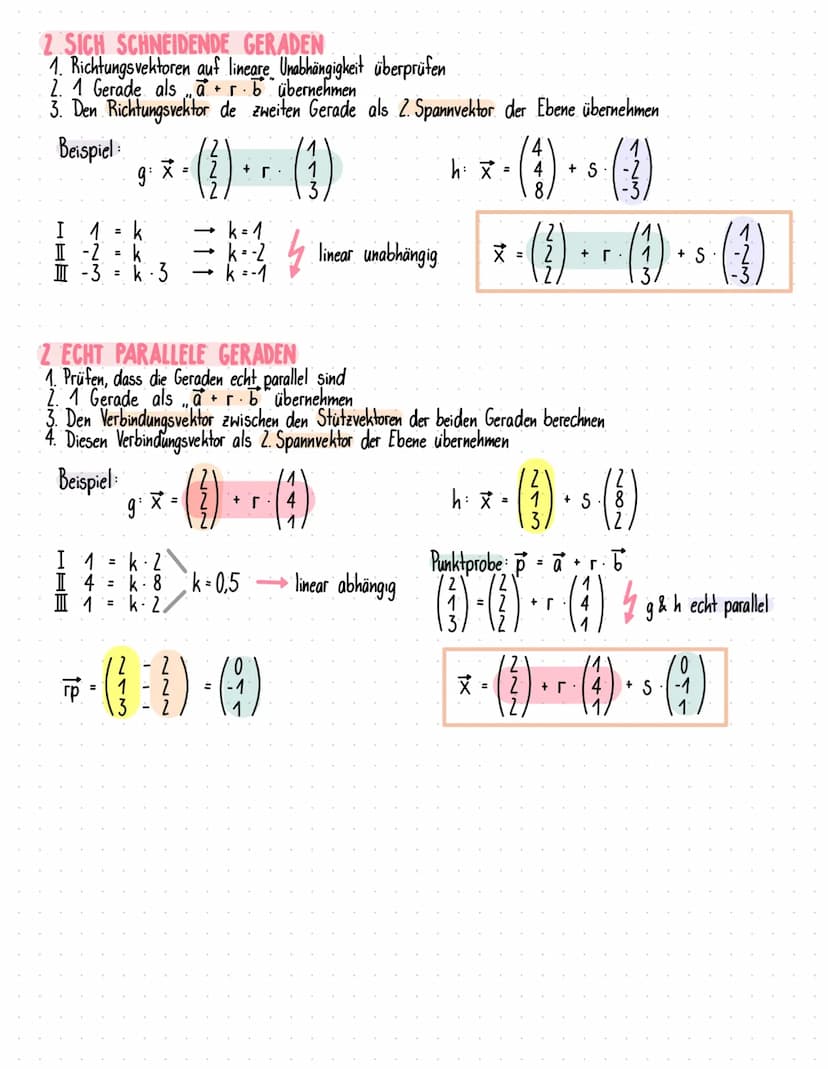 2 SICH SCHNEIDENDE GERADEN
1. Richtungsvektoren auf lineare Unabhängigkeit überprüfen
2. 1 Gerade als „a⃗ + r · b⃗“ übernehmen
3. Den Richtungsvektor de zweiten Gerade als 2. Spannvektor der Ebene übernehmen
Beispiel: g: x⃗ = (2 2 2) + r · (1 1 3) h: x⃗ = (4 4 8) + s · (1 -2 -3)
I 1 = k → k = 1
II -2 = k → k = -2 linear unabhängig
III -3 = k · 3 → k = -1
x⃗ = (2 2 2) + r · (1 1 3) + s · (1 -2 -3)
2 ECHT PARALLELE GERADEN
1. Prüfen, dass die Geraden echt parallel sind
2. 1 Gerade als „a⃗ + r · b⃗“ übernehmen
3. Den Verbindungsvektor zwischen den Stützvektoren der beiden Geraden berechnen
4. Diesen Verbindungsvektor als 2. Spannvektor der Ebene übernehmen
Beispiel: g: x⃗ = (2 2 2) + r · (1 4 1) h: x⃗ = (2 1 3) + s · (2 8 2)
I 1 = k · 2
II 4 = k · 8 k = 0,5 → linear abhängig
III 1 = k · 2
Punktprobe: p⃗ = a⃗ + r · b⃗
(2 1 3) = (2 2 2) + r · (1 4 1) g & h echt parallel
rp⃗ = (2 - 2 1 - 2 3 - 2) = (0 -1 1)
x⃗ = (2 2 2) + r · (1 4 1) + s · (0 -1 1)